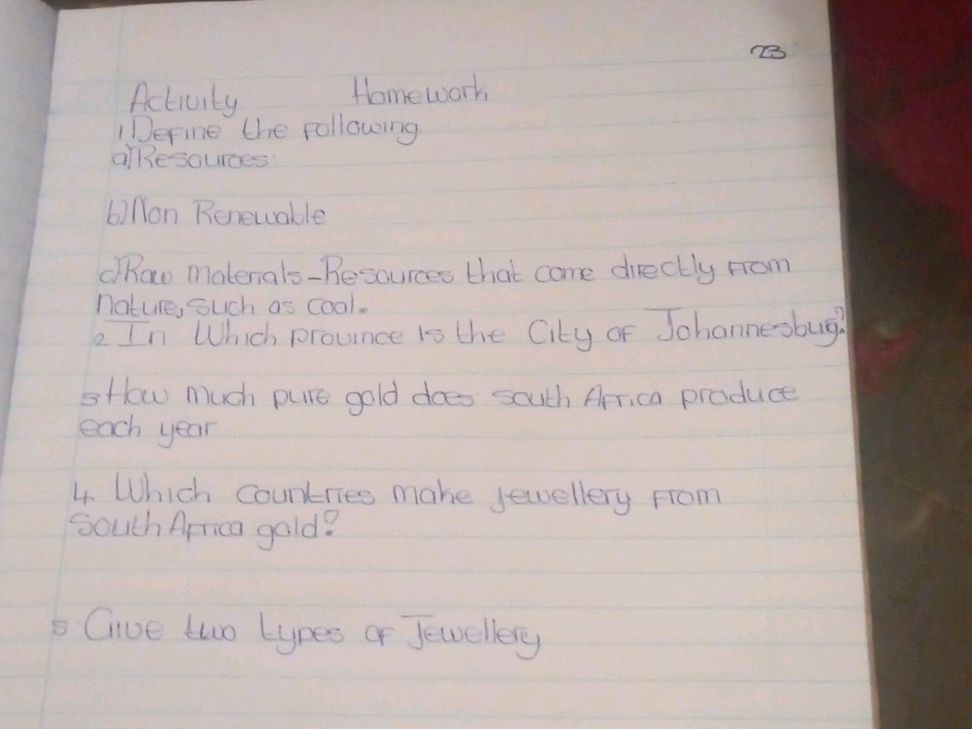 23
Activity Homework
1) Define the following
a) Resources:
b) Non Renewable
c) Raw Materials - Resources that come directly from
nature, such as coal.
2 In Which province is the City of Johannesbug?
3 How much pure gold does south Africa produce
each year
4. Which countries make jewellery from
South Africa gold?
5. Give two types of Jewellery